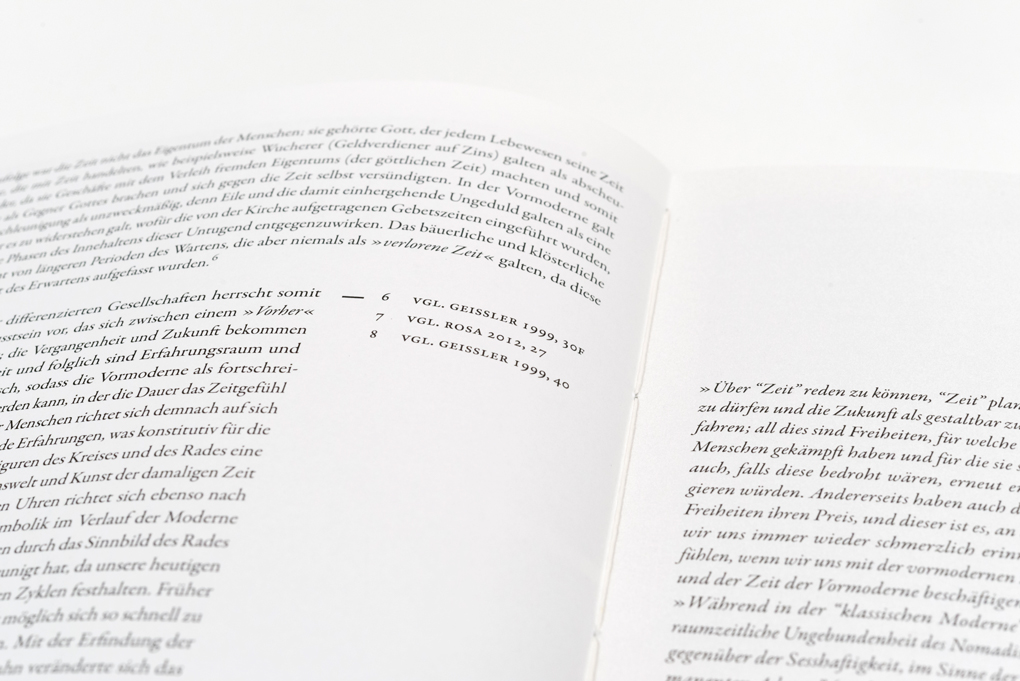 war die Zeit nicht das Eigentum der Menschen; sie gehörte Gott, der jedem Lebewesen seine Zeit
die mit Zeit handelten, wie beispielsweise Wucherer (Geldverdiener auf Zins) galten als abscheu-
da sie Geschäfte mit dem Verleih fremden Eigentums (der göttlichen Zeit) machten und somit
als Gegner Gottes brachen und sich gegen die Zeit selbst versündigten. In der Vormoderne galt
als unzweckmäßig, denn Eile und die damit einhergehende Ungeduld galten als eine
es zu widerstehen galt, wofür die von der Kirche aufgetragenen Gebetszeiten eingeführt wurden,
Phasen des Innehaltens dieser Untugend entgegenzuwirken. Das bäuerliche und klösterliche
von längeren Perioden des Wartens, die aber niemals als »verlorene Zeit« galten, da diese
des Erwartens aufgefasst wurden.⁶
differenzierten Gesellschaften herrscht somit
vor, das sich zwischen einem »Vorher«
die Vergangenheit und Zukunft bekommen
und folglich sind Erfahrungsraum und
sodass die Vormoderne als fortschrei-
kann, in der die Dauer das Zeitgefühl
Menschen richtet sich demnach auf sich
Erfahrungen, was konstitutiv für die
des Kreises und des Rades eine
und Kunst der damaligen Zeit
Uhren richtet sich ebenso nach
im Verlauf der Moderne
durch das Sinnbild des Rades
hat, da unsere heutigen
Zyklen festhalten. Früher
möglich sich so schnell zu
Mit der Erfindung der
veränderte sich das
— 6 VGL. GEISSLER 1999, 30F
7 VGL. ROSA 2012, 27
8 VGL. GEISSLER 1999, 40
»Über “Zeit” reden zu können, “Zeit” plan
zu dürfen und die Zukunft als gestaltbar zu
fahren; all dies sind Freiheiten, für welche
Menschen gekämpft haben und für die sie
auch, falls diese bedroht wären, erneut
gieren würden. Andererseits haben auch
Freiheiten ihren Preis, und dieser ist es, an
wir uns immer wieder schmerzlich erin
fühlen, wenn wir uns mit der vormodernen
und der Zeit der Vormoderne beschäftigen
»Während in der “klassischen Moderne”
raumzeitliche Ungebundenheit des Nomadi
gegenüber der Sesshaftigkeit, im Sinne der